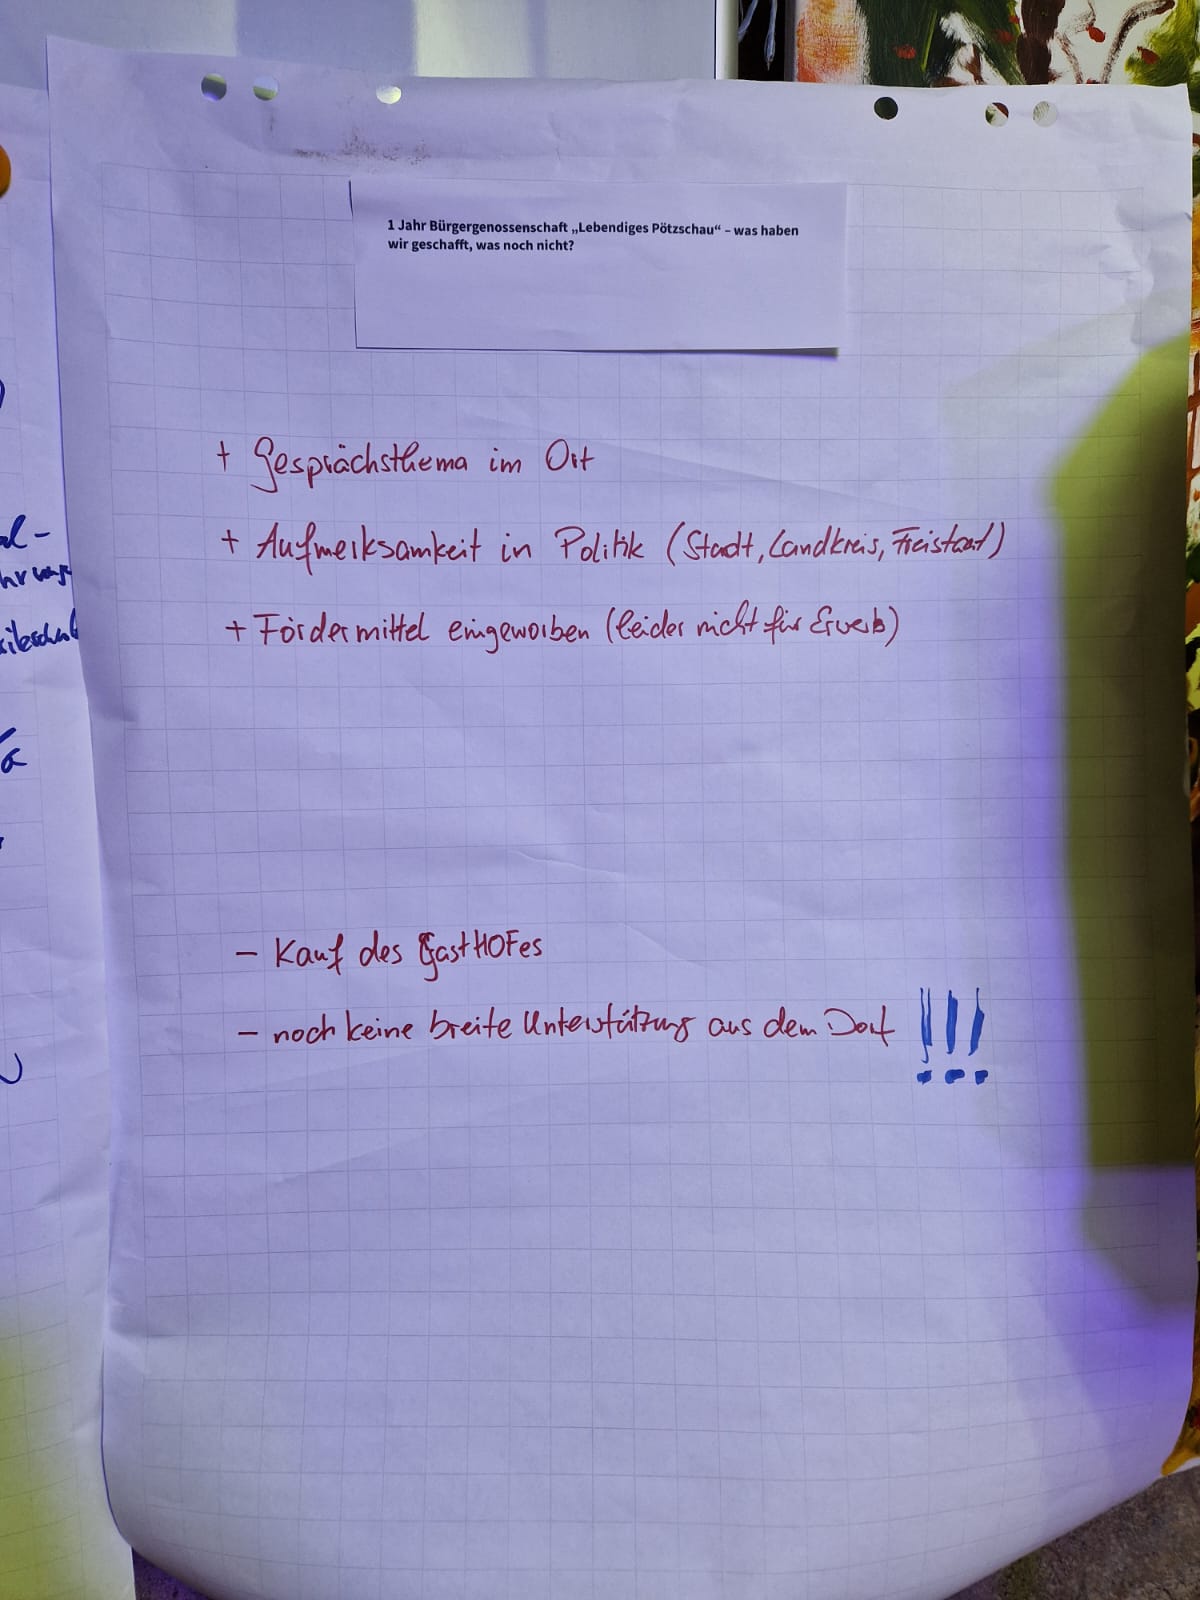 1 Jahr Bürgergenossenschaft „Lebendiges Pötzschau“ – was haben
wir geschafft, was noch nicht?
+ Gesprächsthema im Ort
+ Aufmerksamkeit in Politik (Stadt, Landkreis, Freistaat)
+ Fördermittel eingeworben (leider nicht für Erwerb)
- Kauf des GastHOFes
- noch keine breite Unterstützung aus dem Dorf !!!